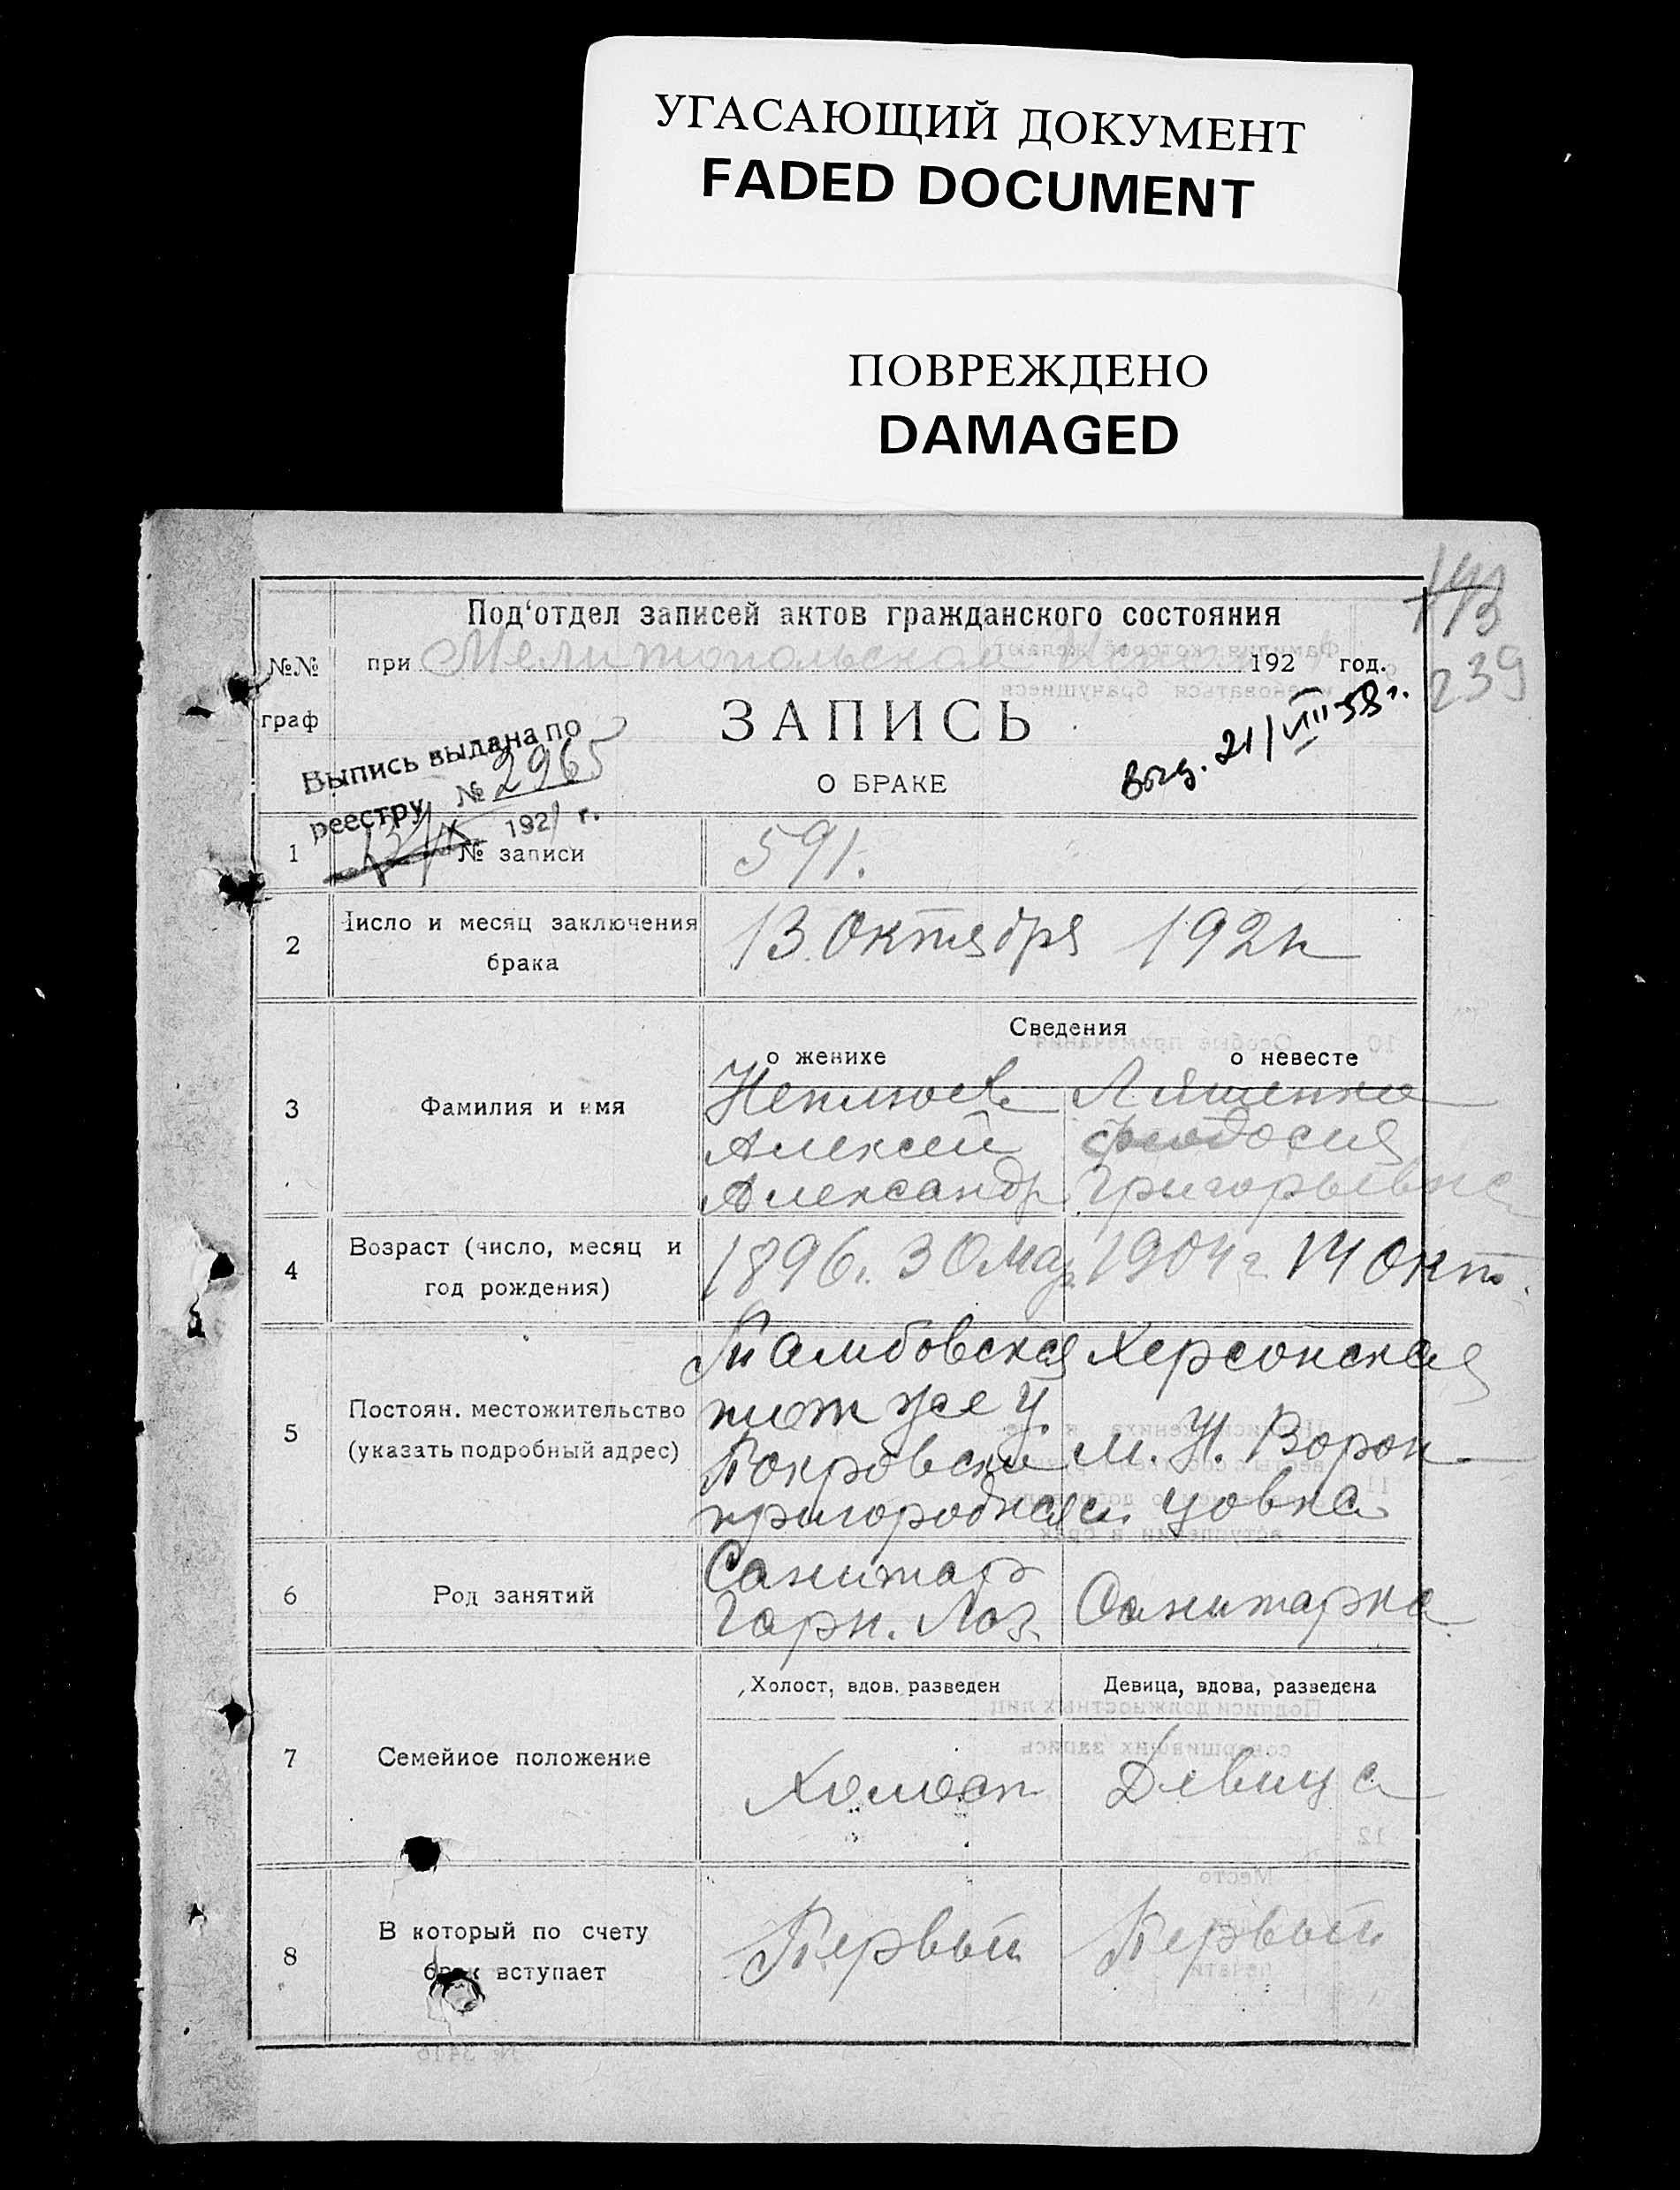 УГАСАЮЩИЙ ДОКУМЕНТ
FADED DOCUMENT
ПОВРЕЖДЕНО
DAMAGED
143
239
Под‘отдел записей актов гражданского состояния
№№ граф
при Мелитопольском 192 год.
ЗАПИСЬ
О БРАКЕ
Выд. 21/VIII 58 г.
Выпись выдана по
реестру № 2965
13/X 1921 г.
1 № записи 591.
2 Число и месяц заключения
брака
13 Октября 192
Сведения
о женихе о невесте
3 Фамилия и имя
Неплюев Ляшенко
Алексей Феодосия
Александр. Григорьевна
4 Возраст (число, месяц и
год рождения)
1896 г. 30 Мар. 1904 г. 14 Окт.
5 Постоян. местожительство
(указать подробный адрес)
Тамбовская Херсонская
тот же у.
Покровск М. Н. Ворон-
пригородная цовка
6 Род занятий
Санитар
Гарн. Лаз. Санитарка
Холост, вдов. разведен Девица, вдова, разведена
7 Семейное положение
Холост Девица
8 В который по счету
брак вступает
Первый Первый